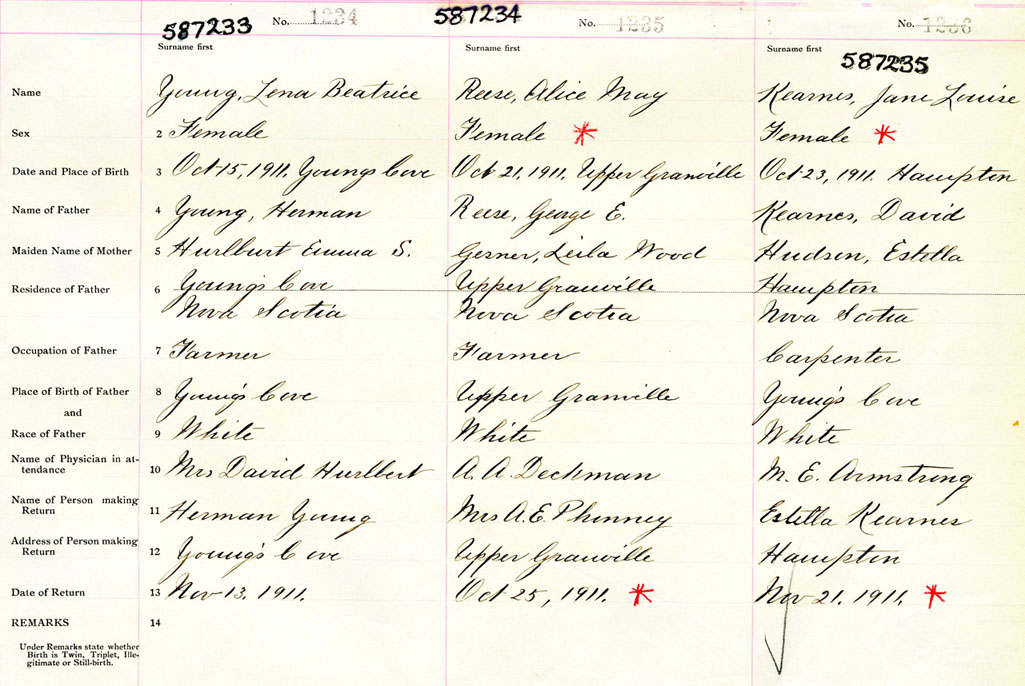 587233 No. 1234 587234 No. 1235 No. 1236
Surname first Surname first Surname first
587235
Name Young, Lena Beatrice Reese, Alice May Kearnes, Jane Louise
Sex 2 Female Female * Female *
Date and Place of Birth 3 Oct 15, 1911. Youngs Cove Oct 21, 1911. Upper Granville Oct 23, 1911. Hampton
Name of Father 4 Young, Herman Reese, George E. Kearnes, David
Maiden Name of Mother 5 Hurlburt Emma S. Gesner, Leila Wood Hudson, Estella
Residence of Father 6 Young's Cove Upper Granville Hampton
Nova Scotia Nova Scotia Nova Scotia
Occupation of Father 7 Farmer Farmer Carpenter
Place of Birth of Father 8 Young's Cove Upper Granville Young's Cove
and
Race of Father 9 White White White
Name of Physician in at-
tendance 10 Mrs David Hurlbert A. A. Deckman M. E. Armstrong
Name of Person making
Return 11 Herman Young Mrs A. E. Phinney Estella Kearnes
Address of Person making
Return 12 Young's Cove Upper Granville Hampton
Date of Return 13 Nov 13, 1911. Oct 25, 1911. * Nov 21, 1911. *
REMARKS 14
Under Remarks state whether
Birth is Twin, Triplet, Ille-
gitimate or Still-birth.